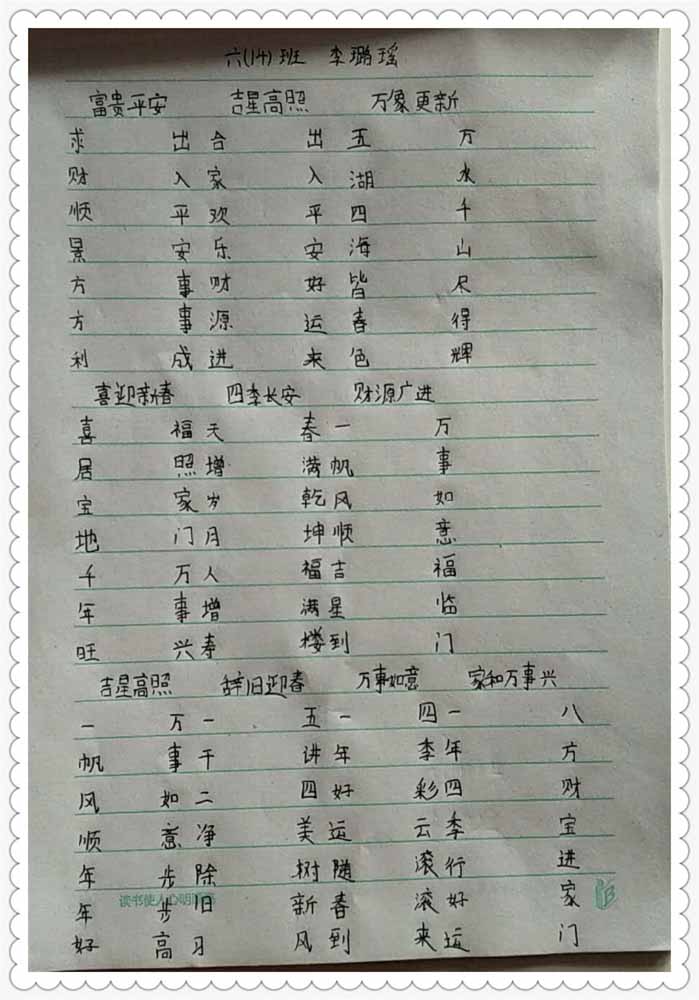 六(14)班 李璐瑶
富贵平安 吉星高照 万象更新
求财顺景方方利
出入平安事事成
合家欢乐财源进
出入平安好运来
五湖四海皆春色
万水千山尽得辉
喜迎新春 四季长安 财源广进
喜居宝地千年旺
福照家门万事兴
天增岁月人增寿
春满乾坤福满楼
一帆风顺吉星到
万事如意福临门
吉星高照 辞旧迎春 万事如意 家和万事兴
一帆风顺年年好
万事如意步步高
一干二净除旧习
五讲四美树新风
一年好运随春到
四季彩云滚滚来
一年四季行好运
八方财宝进家门
读书使人心明